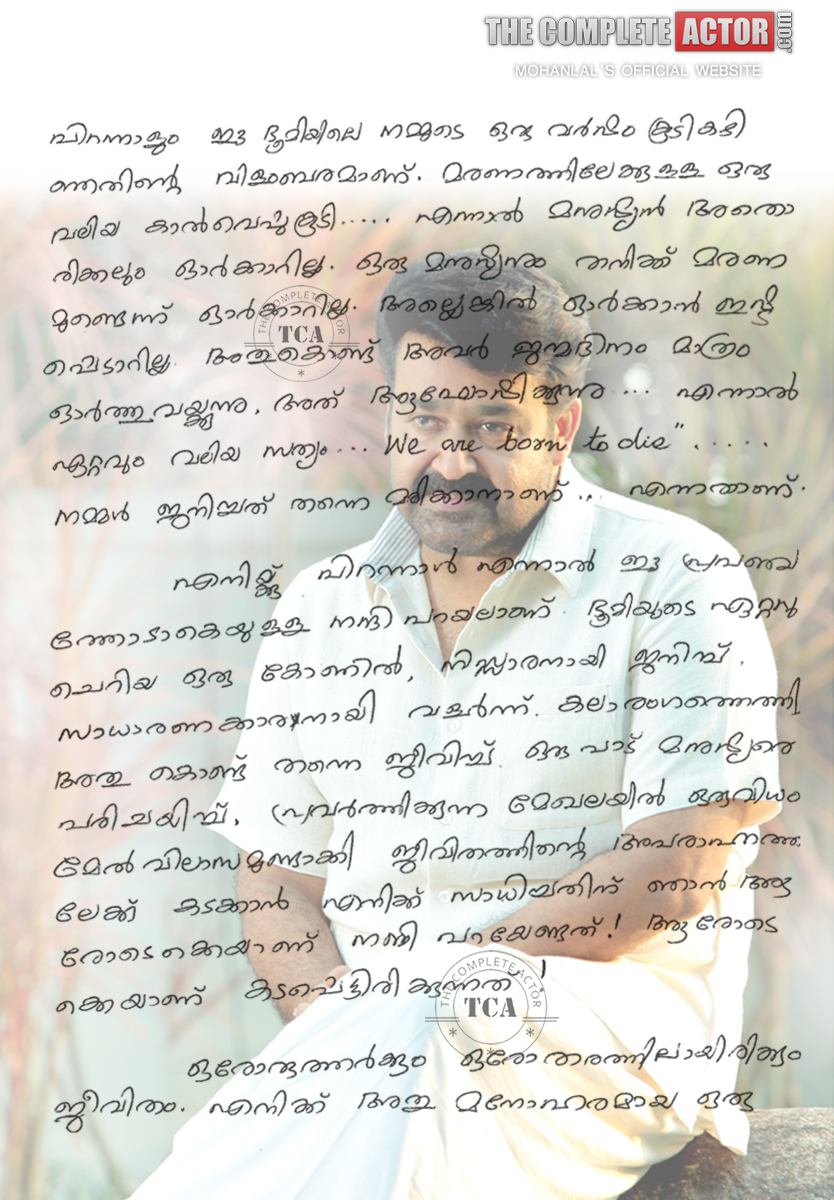 THE COMPLETE ACTOR .com
MOHANLAL'S OFFICIAL WEBSITE
പിറന്നാളും ഈ ഭൂമിയിലെ നമ്മുടെ ഒരു വർഷം കൂടികഴി
ഞ്ഞതിന്റെ വിളംബരമാണ്. മരണത്തിലേക്കുള്ള ഒരു
വലിയ കാൽവെപ്പുകൂടി..... എന്നാൽ മനുഷ്യൻ അതൊ
രിക്കലും ഓർക്കാറില്ല. ഒരു മനുഷ്യനും തനിക്ക് മരണ
മുണ്ടെന്ന് ഓർക്കാറില്ല. അല്ലെങ്കിൽ ഓർക്കാൻ ഇഷ്ട
പ്പെടാറില്ല. അതുകൊണ്ട് അവർ ജന്മദിനം മാത്രം
ഓർത്തുവയ്ക്കുന്നു, അത് ആഘോഷിക്കുന്നു... എന്നാൽ
ഏറ്റവും വലിയ സത്യം... We are born to die".....
നമ്മൾ ജനിച്ചത് തന്നെ മരിക്കാനാണ്... എന്നതാണ്.
എനിയ്ക്ക് പിറന്നാൾ എന്നാൽ ഈ പ്രപഞ്ച
ത്തോടാകെയുള്ള നന്ദി പറയലാണ്. ഭൂമിയുടെ ഏറ്റവു
ചെറിയ ഒരു കോണിൽ, നിസ്സാരനായി ജനിച്ച്,
സാധാരണക്കാരനായി വളർന്ന്. കലാരംഗത്തെത്തി
അതു കൊണ്ട് തന്നെ ജീവിച്ച്. ഒരുപാട് മനുഷ്യരെ
പരിചയിച്ച്, പ്രവർത്തിക്കുന്ന മേഖലയിൽ ഒരുവിധം
മേൽവിലാസമുണ്ടാക്കി ജീവിതത്തിന്റെ അപരാഹ്നത്തി
ലേക്ക് കടക്കാൻ എനിക്ക് സാധിച്ചതിന് ഞാൻ ആ
രോടൊക്കെയാണ് നന്ദി പറയേണ്ടത്! ആരോടെ
ക്കെയാണ് കടപ്പെട്ടിരിക്കുന്നത്!
ഒരോരുത്തർക്കും ഒരോതരത്തിലായിരിക്കും
ജീവിതം. എനിക്ക് അതു മനോഹരമായ ഒരു
THE COMPLETE ACTOR
TCA
THE COMPLETE ACTOR
TCA